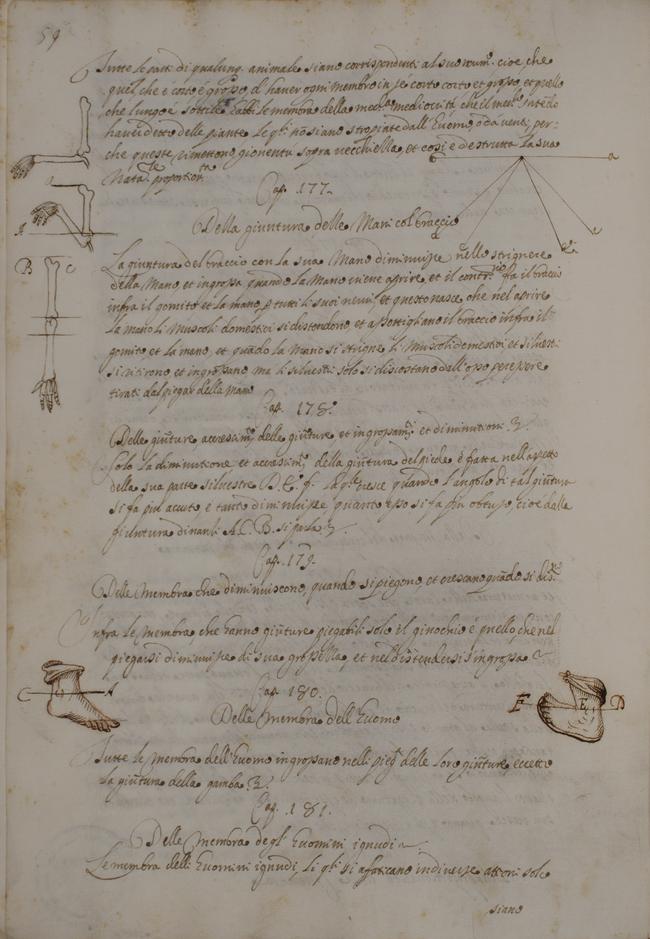 59
Tutte le parti di qualunq. animale siano corrispondenti al suo tutto. cioè, che
quel, che è corto è grosso, d' haver ogni membro in sé corto corto et grosso, et quello
che lungo è sottile habbi le membra della med.ma mediocrità, che il med.mo intendo
haver detto delle piante, le q.li nō siano stropiate dall' huomo, o da venti, per=
che queste rimettono gioventù sopra vecchiella, et così è destrutta la sua
Natu.le proportion.tà
Cap. 177.
Della giuntura delle Mani col braccio
La giuntura del braccio con la sua Mano diminuisce nello strignere
della Mano, et ingrossa quando la Mano viene aprire, et il contrario fa il braccio
infra il gomito et la mano, p tutti li suoi versi, et questo nasce, che nel aprire
la mano li Muscoli domestici si distendono, et assottigliano il braccio infra il
gomito, et la mano, et quādo la mano si strigne li Muscoli domestici et silvestri
si ritirono, et ingrossano, ma li silvestri solo si discostano dall' osso, per essere
tirati dal piegar della mano
Cap. 178.
Delle giūture accrescim.ti delle giūture et ingrossam.ti et diminution.
Solo la diminutione, et accrescim.to della giuntura del piede è fatta nell aspetto
della sua parte silvestre D. E. F. la q.le cresce quando l' angolo di tal giūtura
si fa piu acuto, e tanto diminuisce quanto esso si fa piu obtuso, cioè dalla
giuntura dinanti A. C. B. si parla
Cap. 179.
Delle Membra che diminuiscono, quando si piegono, et crescano quādo si dis.no
Infra le membra, che hanno giūture piegabili solo il ginochio è quello, che nel
piegarsi diminuisce di sua grossezza, et nel distendersi s' ingrossa
Cap. 180.
Delle Membra dell' huomo
Tutte le membra dell' huomo ingrossano nelli pieg.ti delle loro giūture, eccetto
la giūtura della gamba
Cap. 181.
Delle Membra degl' huomini ignudi
Le membra delli huomini ignudi, li q.li si affaticano in diverse attioni solo
siano
B C
a
C A
F E D